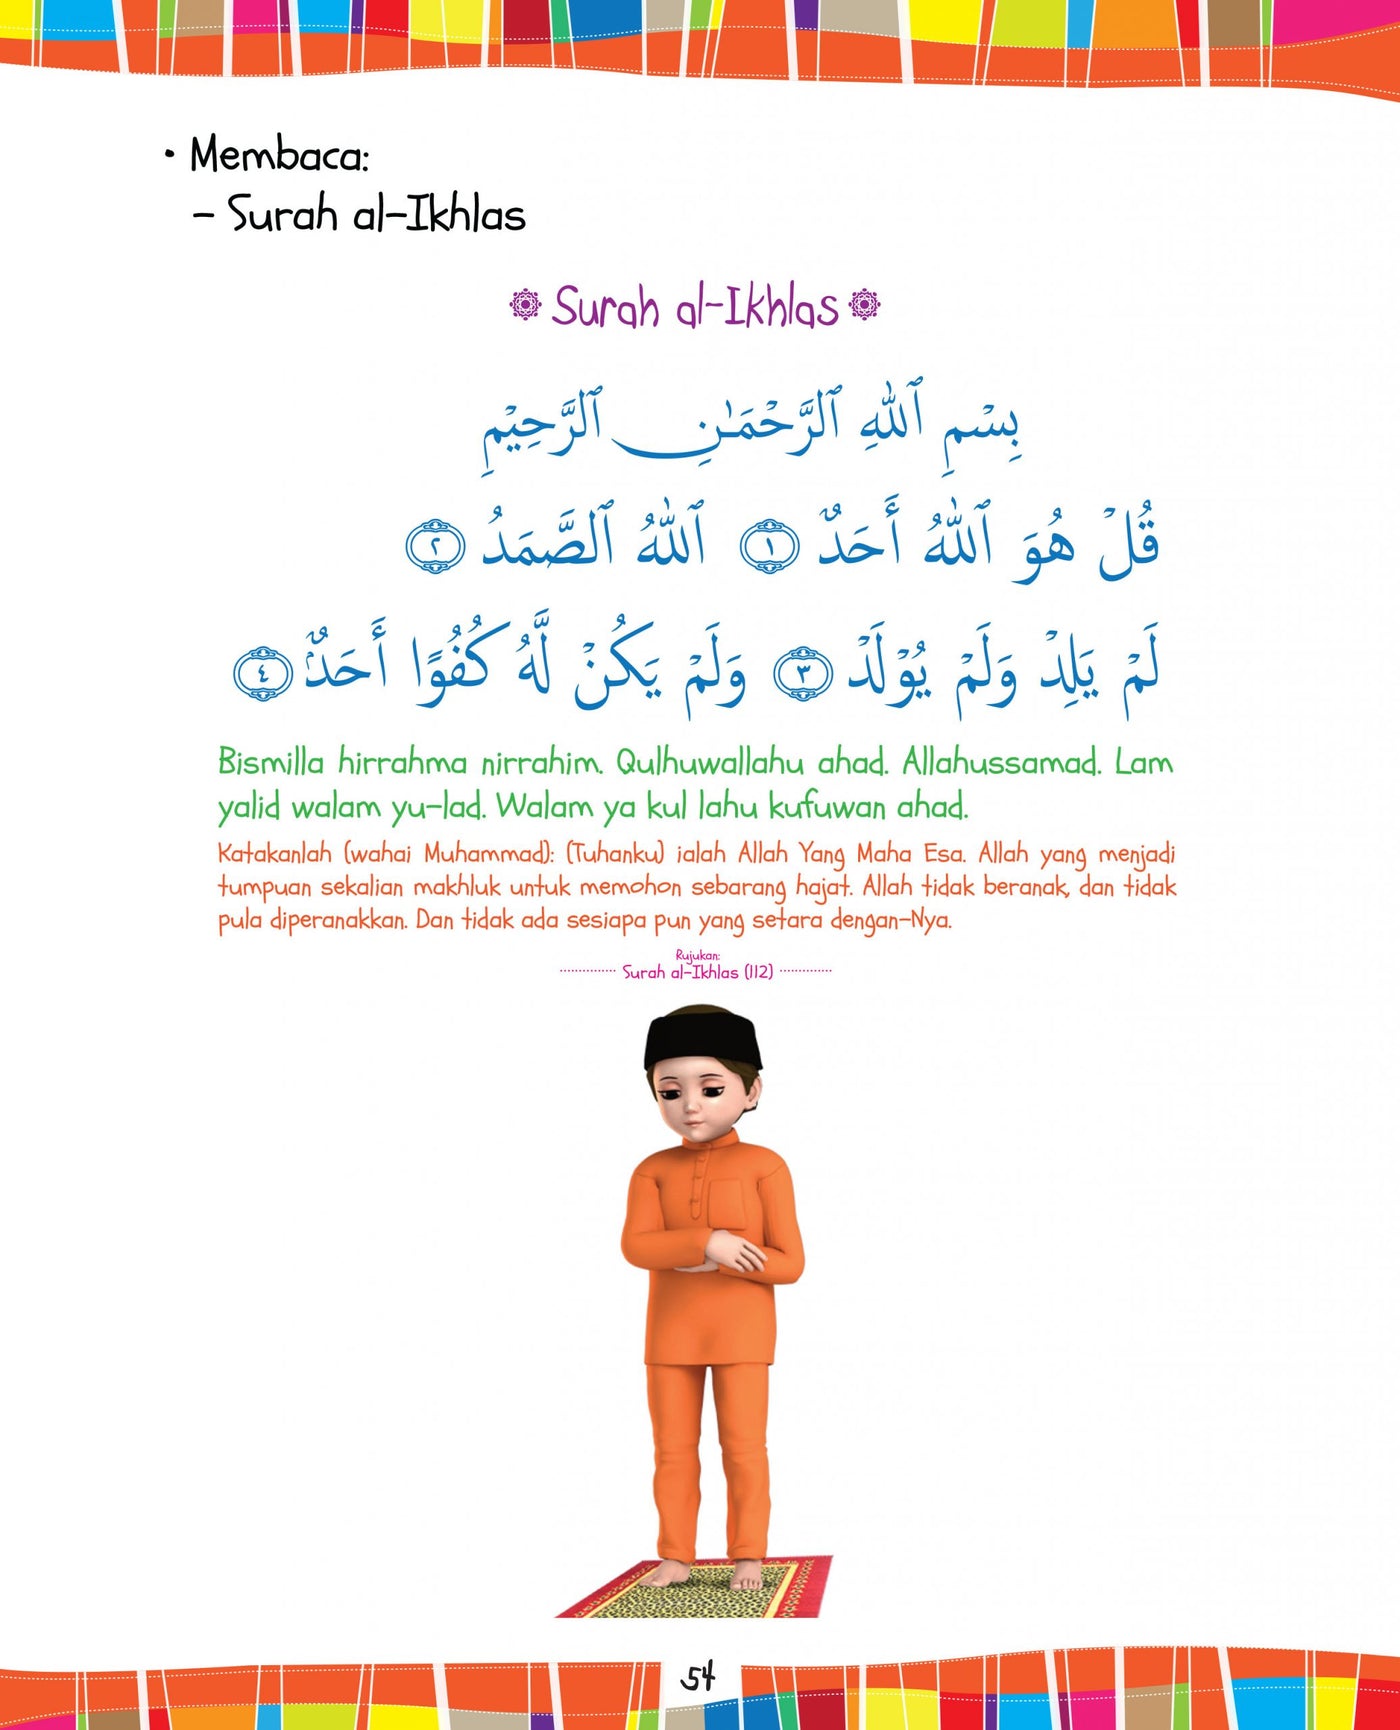 • Membaca:
– Surah al-Ikhlas
Surah al-Ikhlas
بِسْمِ ٱللَّهِ ٱلرَّحْمَـٰنِ ٱلرَّحِيْمِ
قُلْ هُوَ ٱللَّهُ أَحَدٌ ١ ٱللَّهُ ٱلصَّمَدُ ٢
لَمْ يَلِدْ وَلَمْ يُوْلَدْ ٣ وَلَمْ يَكُنْ لَّهُ كُفُوًا أَحَدٌۢ ٤
Bismilla hirrahma nirrahim. Qulhuwallahu ahad. Allahussamad. Lam
yalid walam yu-lad. Walam ya kul lahu kufuwan ahad.
Katakanlah (wahai Muhammad): (Tuhanku) ialah Allah Yang Maha Esa. Allah yang menjadi
tumpuan sekalian makhluk untuk memohon sebarang hajat. Allah tidak beranak, dan tidak
pula diperanakkan. Dan tidak ada sesiapa pun yang setara dengan-Nya.
Rujukan:
Surah al-Ikhlas (112)
54